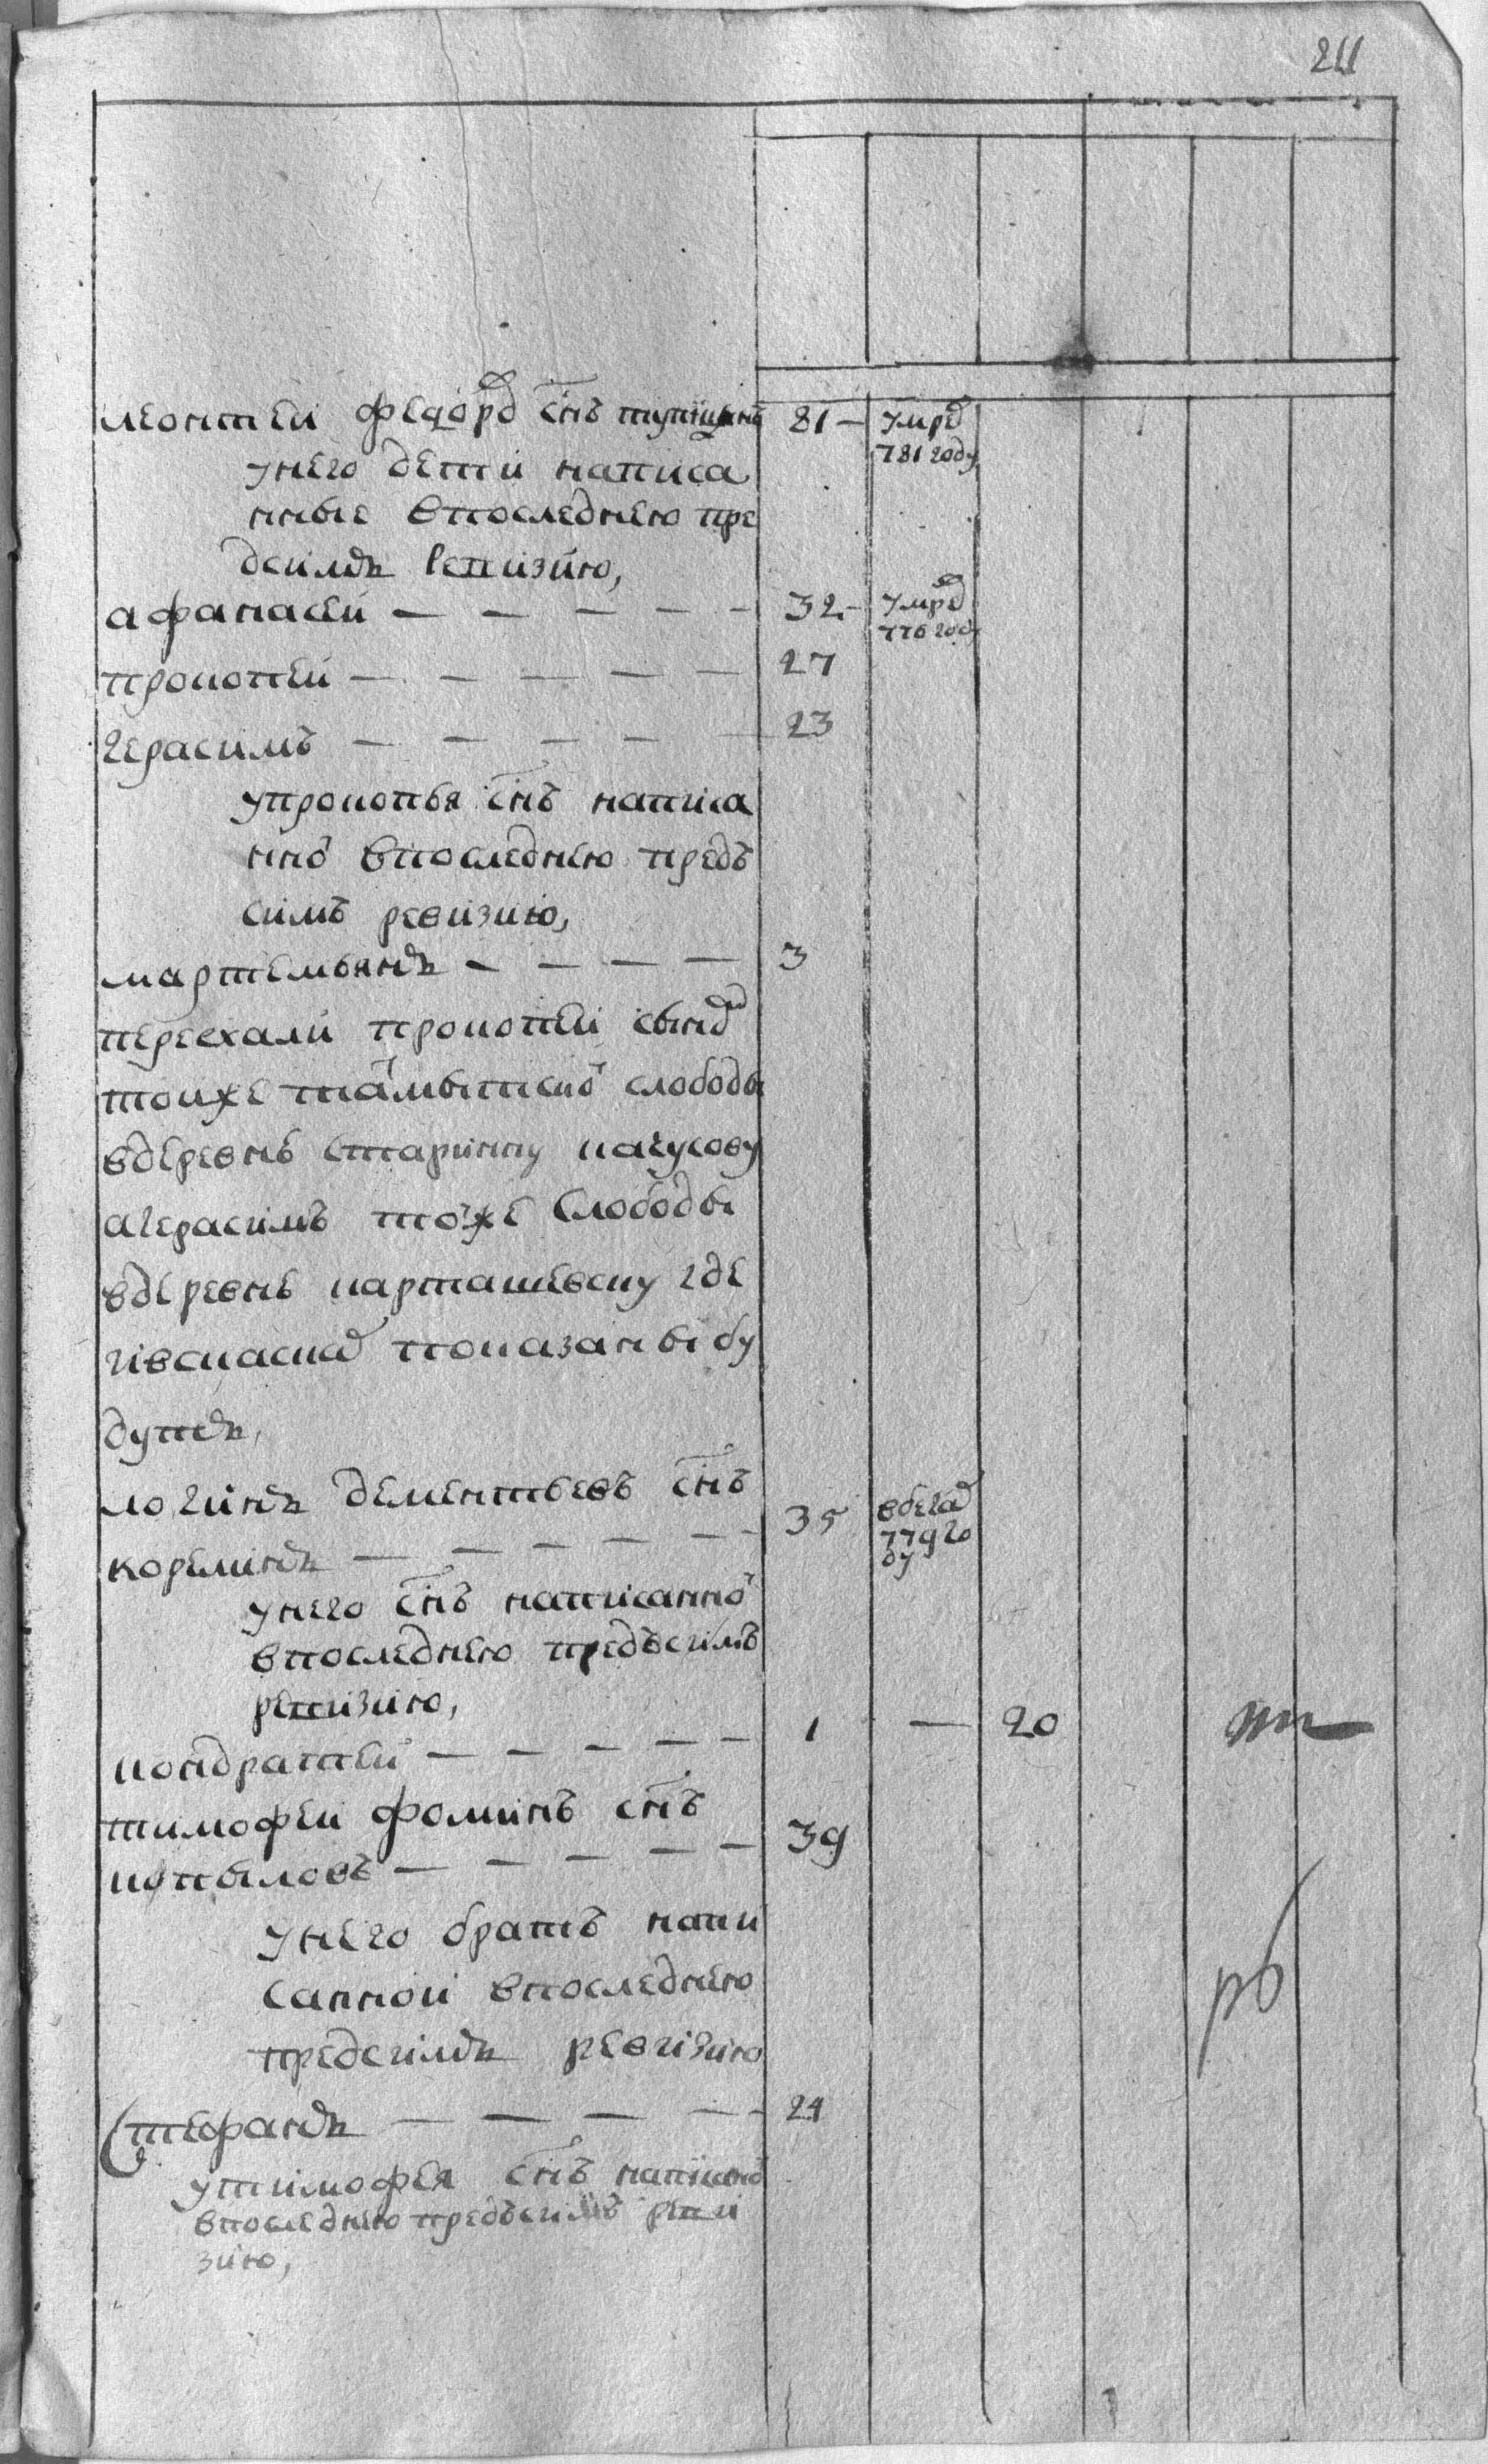 211
леонтей федоровъ снъ 81 — умре
781 году
унего дети написа
нные впоследнею пре
дсимъ ревизию,
афанасей — — — — — 32 — умре
776 году
прокопей — — — — — 27
герасимъ — — — — — 23
упрокопья снъ написа
нной впоследнею предъ
симъ ревизию,
мартемьянъ — — — — 3
переехали прокопей сыномъ
тоиже слободы
вдеревню старинну качусову
агерасимъ тойже слободы
вдеревню карташевску где
ивсказкѣ показаны бу
дутъ,
логинъ дементьевъ снъ
корелинъ — — — — — 35 вбегахъ
779 го
ду
унего снъ написанной
впоследнею предъсимъ
ревизию,
кондратей — — — — — 1 — 20
тимофеи фоминъ снъ
копыловъ — — — — — 39
унего братъ напи
санной впоследнею
предсимъ ревизию
стефанъ — — — — — 24
утимофея снъ написаной
впоследнею предъсимъ реви
зию,